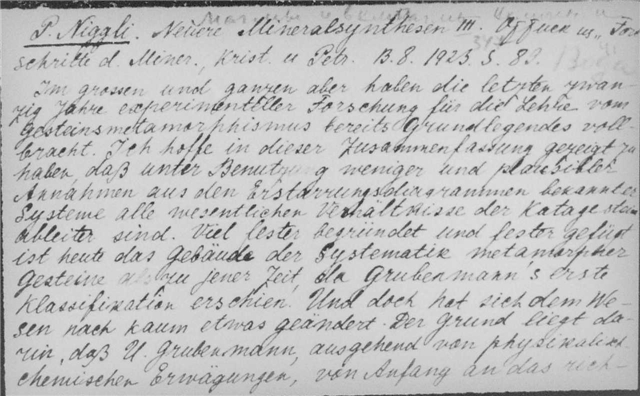 P. Niggli. Neuere Mineralsynthesen III. Offuck us „Fort
schritte d. Miner., Krist. u Petr. B. 8. 1923. S. 83.
Im grossen und ganzen aber haben die letzten zwan-
zig Jahre experimenteller Forschung für die Lehre vom
Gesteinsmetamorphismus bereits Grundlegendes voll-
bracht. Ich hoffe in dieser Zusammenfassung gezeigt zu
haben, daß unter Benutzung weniger und plausibler
Annahmen aus den Erstarrungsdiagrammen bekannter
Systeme alle wesentlichen Verhältnisse der
ableiter sind. Viel fester begründet und fester gefügt
ist heute das Gebäude der Systematik metamorpher
Gesteine als zu jener Zeit, da Grubenmann's erste
Klassifikation erschien. Und doch hat sich dem We-
sen nach kaum etwas geändert. Der Grund liegt da-
rin, daß U. Grubenmann, ausgehend von physikalisch
chemischen Erwägungen, von Anfang an das rich-